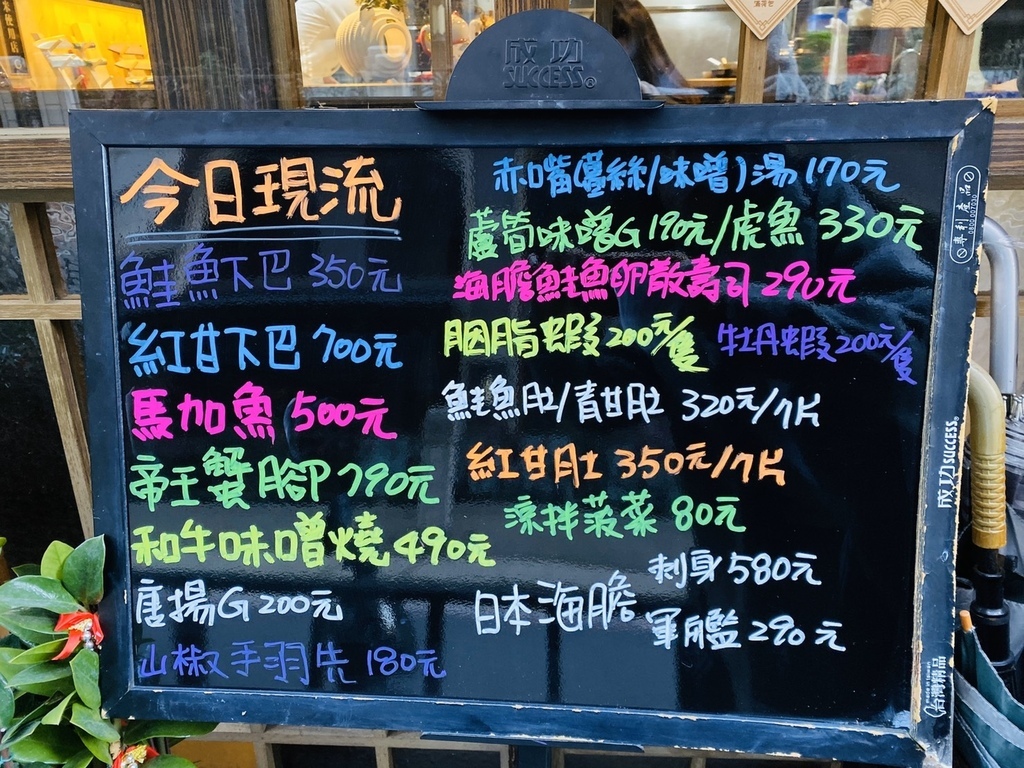 成功
SUCCESS®
今日現流
鮭魚下巴 350元
紅甘下巴 700元
馬加魚 500元
帝王蟹腳 790元
和牛味噌燒 490元
唐揚G 200元
山椒手羽先 180元
赤嘴(薑絲/味噌)湯 170元
蘆筍味噌G 190元/虎魚 330元
海膽鮭魚卵散壽司 290元
胭脂蝦 200元/隻 牡丹蝦 200元/隻
鮭魚肚/青甘肚 320元/7片
紅甘肚 350元/7片
涼拌菠菜 80元
日本海膽 刺身 580元
軍艦 290元
專利產品
成功SUCCESS®
台灣精品